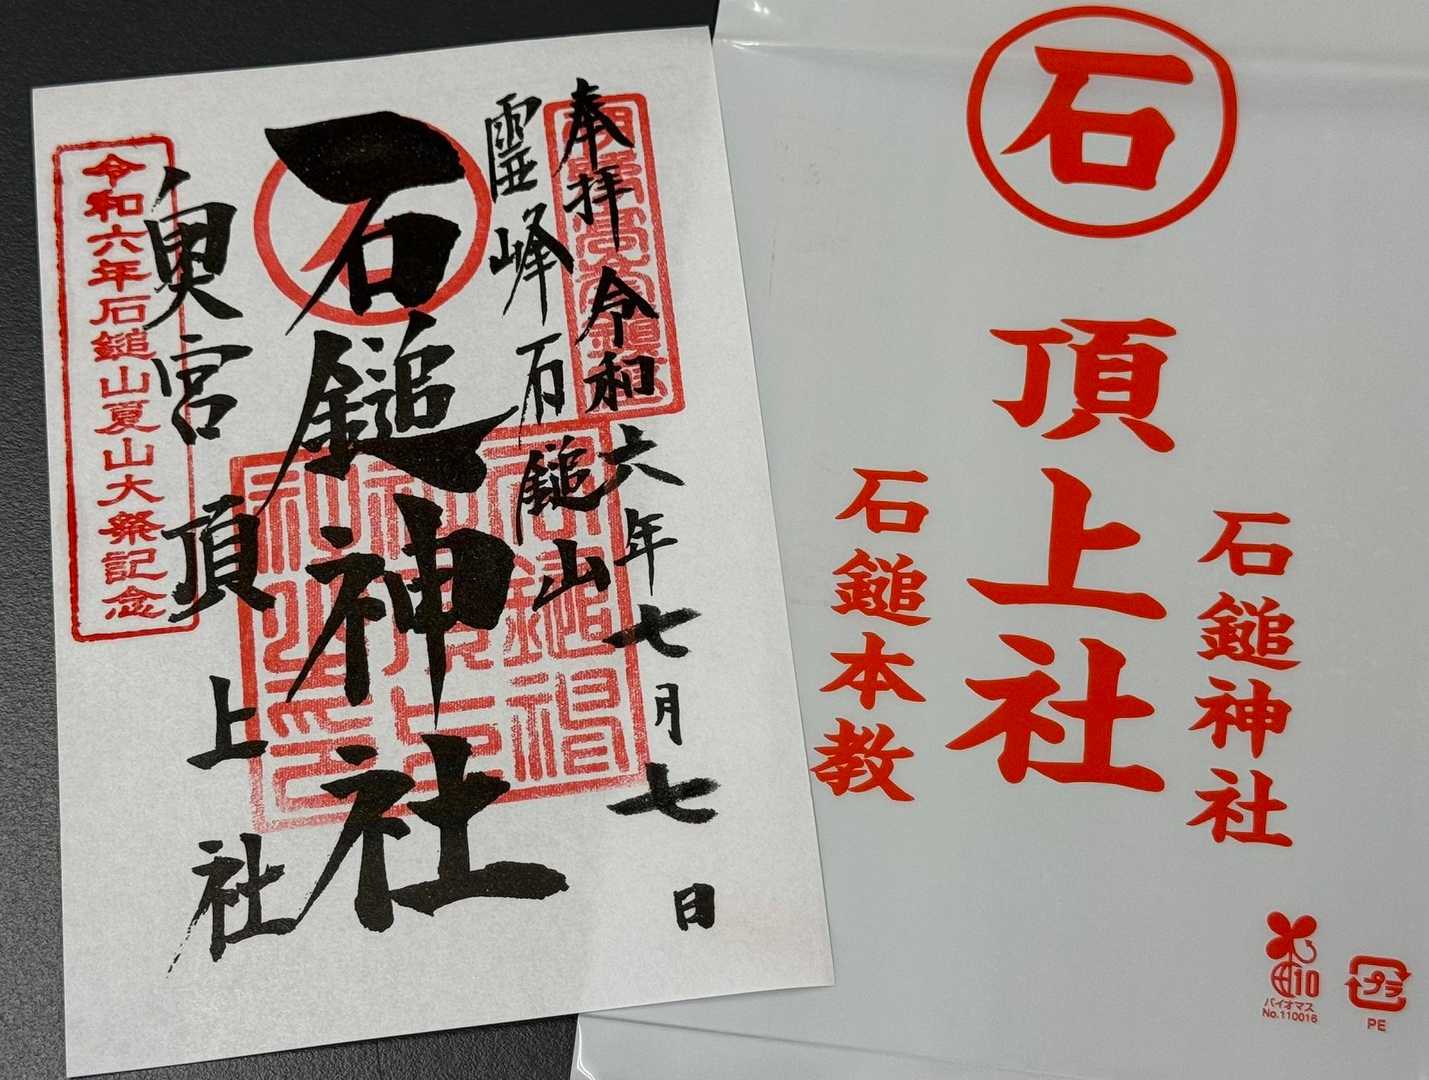 奉拝 令和六年七月七日
霊峰石鎚山
石鎚神社
奥宮頂上社
令和六年石鎚山夏山大祭記念
石
石
頂上社
石鎚神社
石鎚本教
10
バイオマス
No.110016
プラ
PE